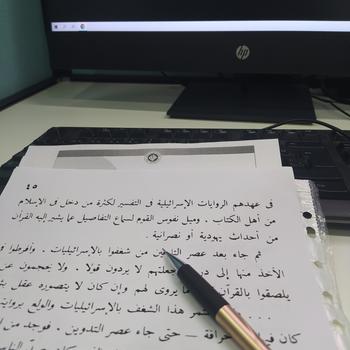 hp
٤٥
فى عهدهم الروايات الإسرائيلية فى التفسير لكثرة من دخل فى الإسلام
من أهل الكتاب . وميل نفوس القوم لسماع التفاصيل عما يشير إليه القرآن
من أحداث يهودية أو نصرانية .
ثم جاء بعد عصر التابعين من شغفوا بالإسرائيليات . وأفرطوا فى
الأخذ منها إلى درجة جعلتهم لا يردون قولا . ولا يحجمون عن
يلصقوا بالقرآن ما يروى لهم وإن كان لا يتصوره عقل
هذا الشغف بالإسرائيليات والولع برواية
كان حتى جاء عصر التدوين . فوجد من